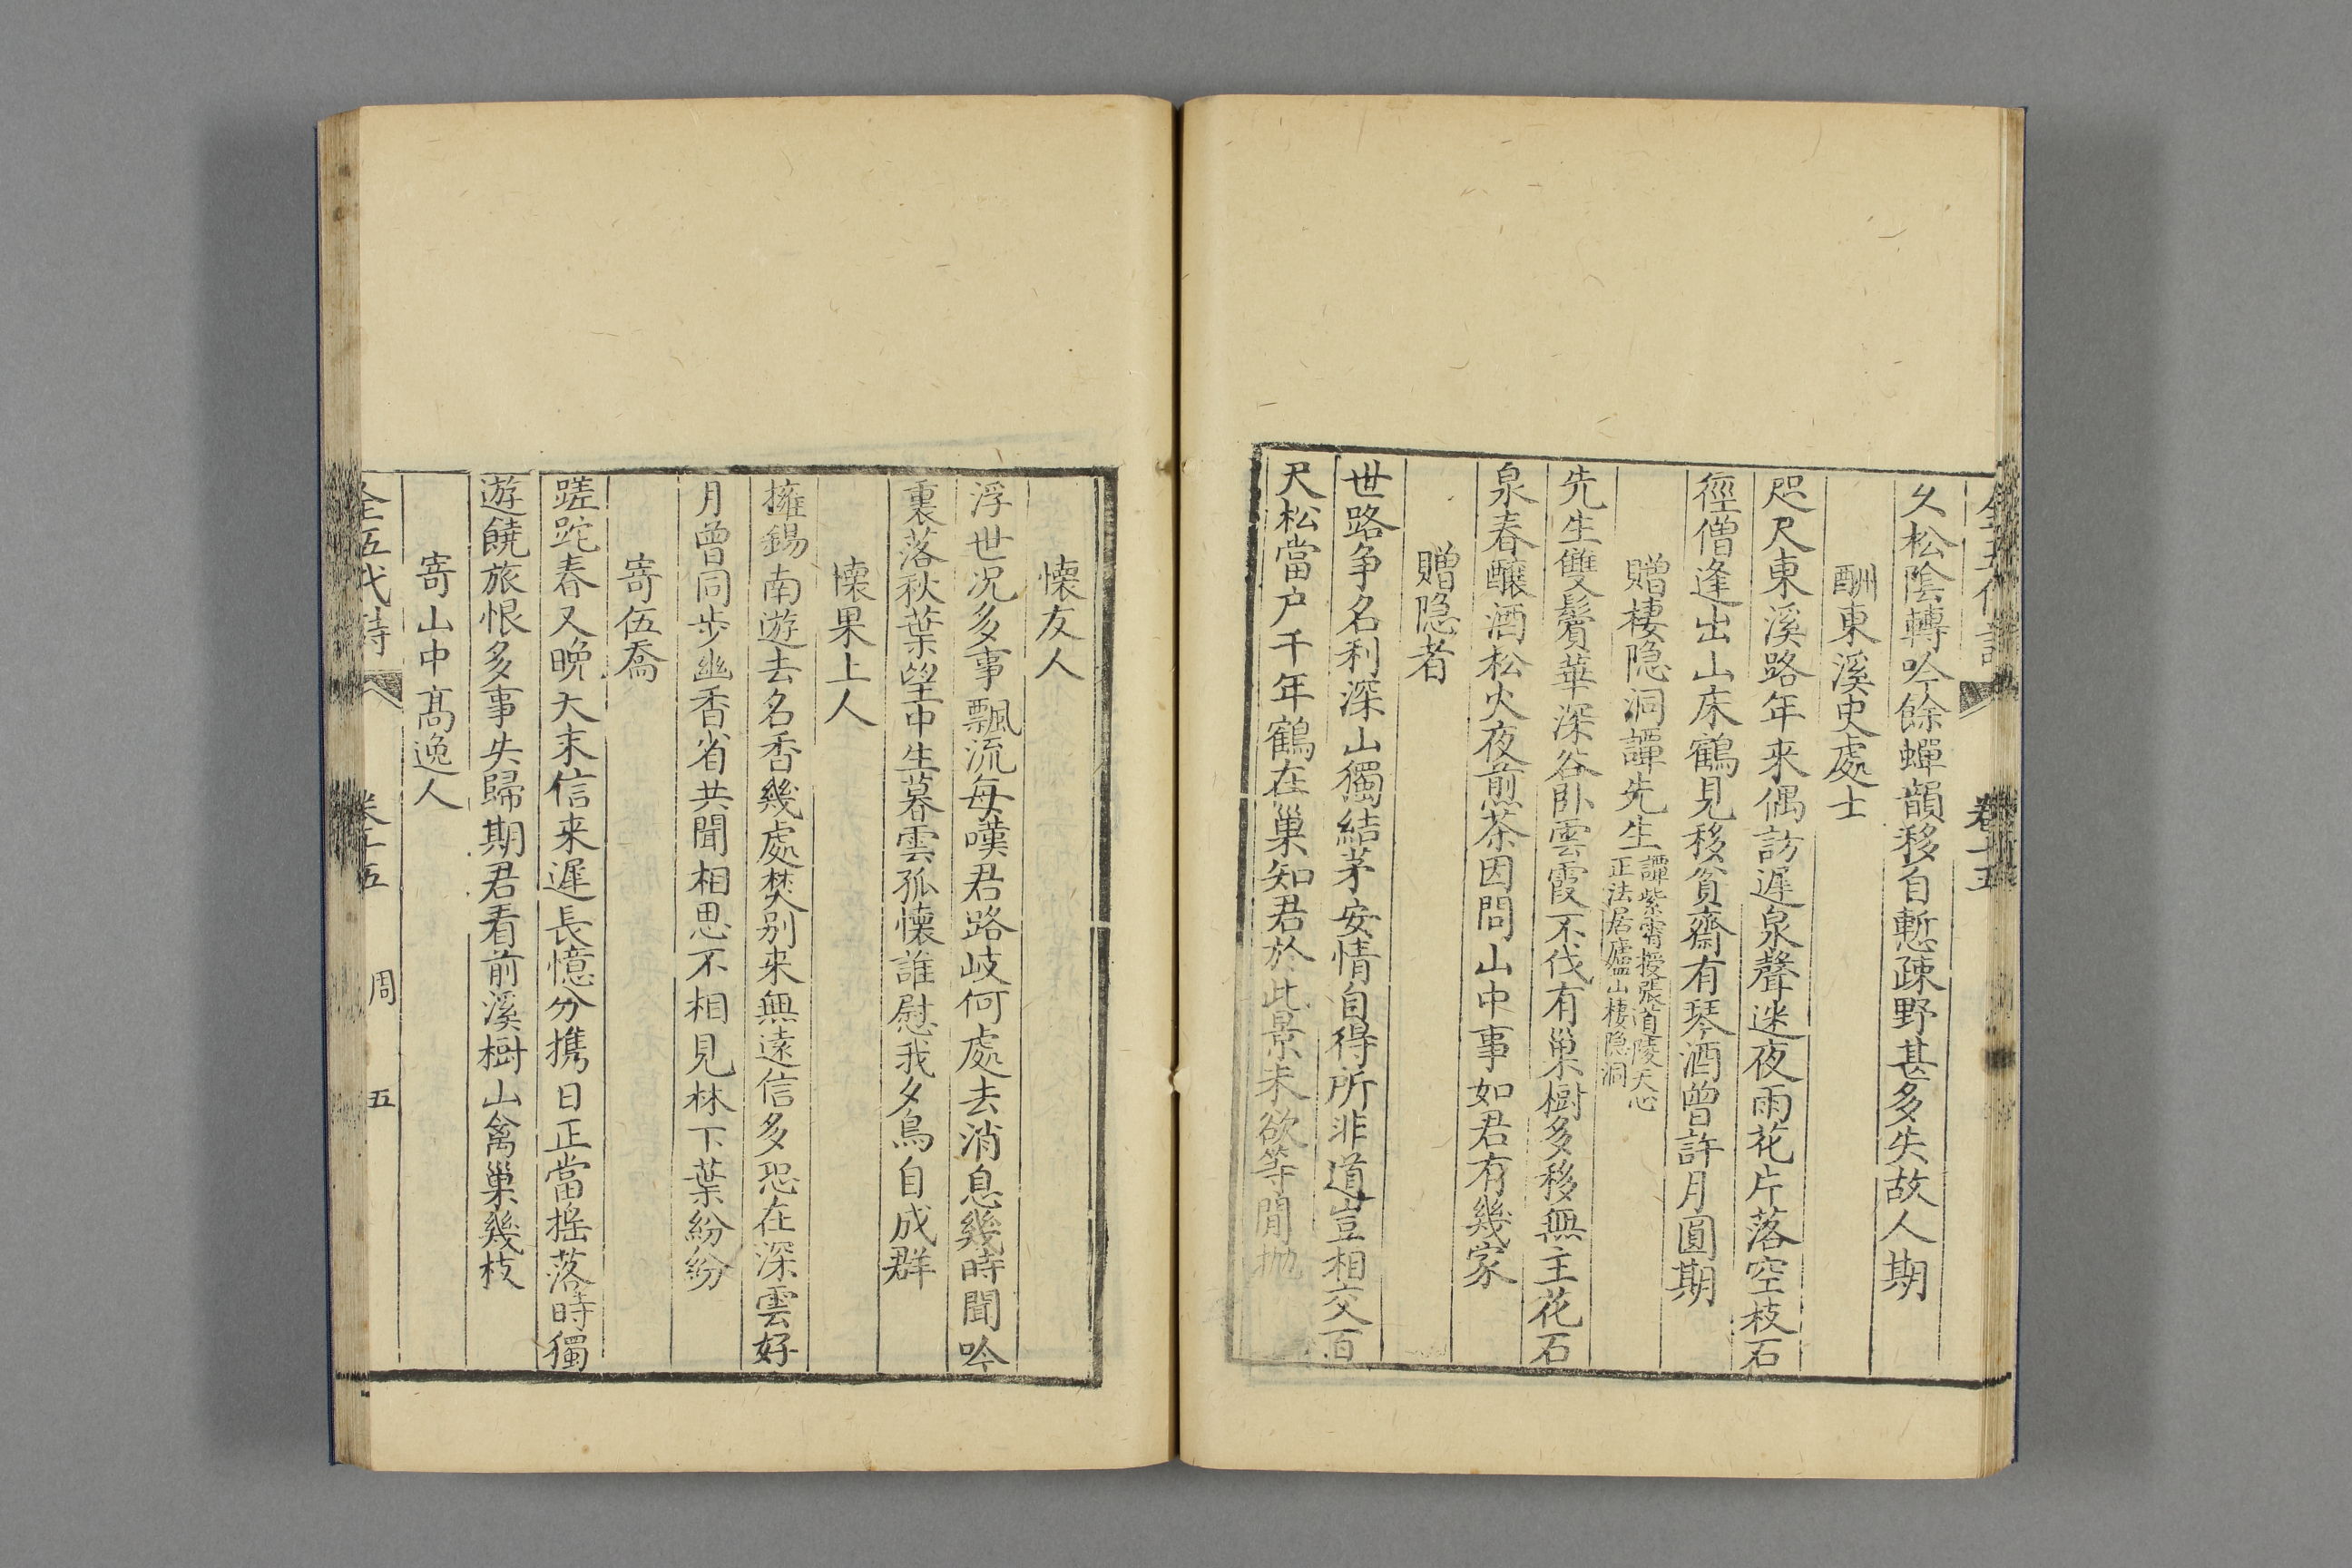 久松陰轉吟餘蟬韻移自慙疎野甚多失故人期
酬東溪史處士
咫尺東溪路年来偶訪遲泉聲迷夜雨花片落空枝石
徑僧逢出山床鶴見移貧齋有琴酒曾許月圓期
贈棲隐洞譚先生
譚紫霄授張道陵天心
正法居廬山棲隐洞
先生雙鬢華深谷卧雲霞不伐有巢樹多移無主花石
泉春釀酒松火夜煎茶因問山中事如君有幾家
贈隐者
世路争名利深山獨結茅安情自得所非道豈相交百
尺松當户千年鶴在巢知君於此景未欲等閒抛
懷友人
浮世况多事飄流每嘆君路岐何處去消息幾時聞吟
裏落秋葉望中生暮雲孤懷誰慰我夕鳥自成群
懷果上人
擁錫南遊去名香幾處焚别来無遠信多恐在深雲好
月曾同步幽香省共聞相思不相見林下葉紛紛
寄伍喬
蹉跎春又晚天末信来遲長憶分携日正當摇落時獨
遊饒旅恨多事失歸期君看前溪樹山禽巢幾枝
寄山中髙逸人
全五代詩 卷十五 周 五